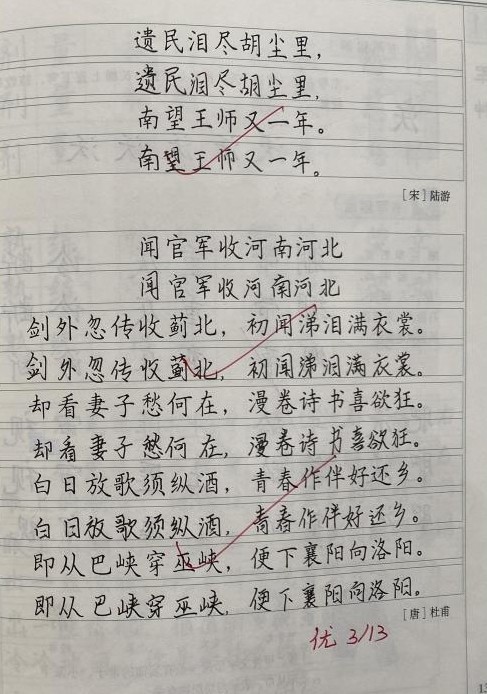 遗民泪尽胡尘里，
遗民泪尽胡尘里，
南望王师又一年。
南望王师又一年。
［宋］陆游
闻官军收河南河北
闻官军收河南河北
剑外忽传收蓟北，初闻涕泪满衣裳。
剑外忽传收蓟北，初闻涕泪满衣裳。
却看妻子愁何在，漫卷诗书喜欲狂。
却看妻子愁何在，漫卷诗书喜欲狂。
白日放歌须纵酒，青春作伴好还乡。
白日放歌须纵酒，青春作伴好还乡。
即从巴峡穿巫峡，便下襄阳向洛阳。
即从巴峡穿巫峡，便下襄阳向洛阳。
［唐］杜甫
优 3/13